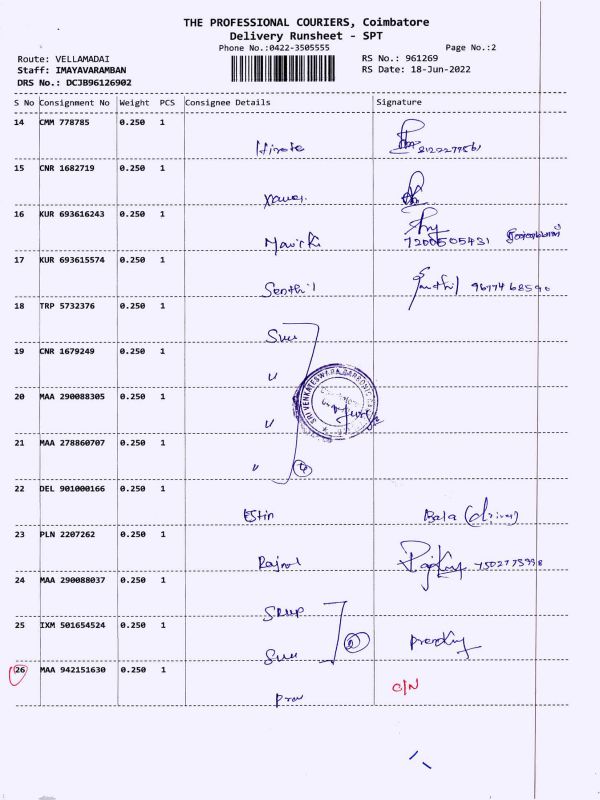 THE PROFESSIONAL COURIERS, Coimbatore
Delivery Runsheet - SPT
Phone No.:0422-3505555
Page No.:2
Route: VELLAMADAI
RS No.: 961269
Staff: IMAYAVARAMBAN
RS Date: 18-Jun-2022
DRS No.: DCJB96126902
S No Consignment No Weight PCS Consignee Details Signature
14 CMM 778785 0.250 1
15 CNR 1682719 0.250 1
16 KUR 693616243 0.250 1
7200505431
17 KUR 693615574 0.250 1
Senthil
18 TRP 5732376 0.250 1
19 CNR 1679249 0.250 1
"
20 MAA 290088305 0.250 1
"
21 MAA 278860707 0.250 1
"
22 DEL 901000166 0.250 1
Estin Bala (driver)
23 PLN 2207262 0.250 1
24 MAA 290088037 0.250 1
25 IXM 501654524 0.250 1
2
26 MAA 942151630 0.250 1
C/N